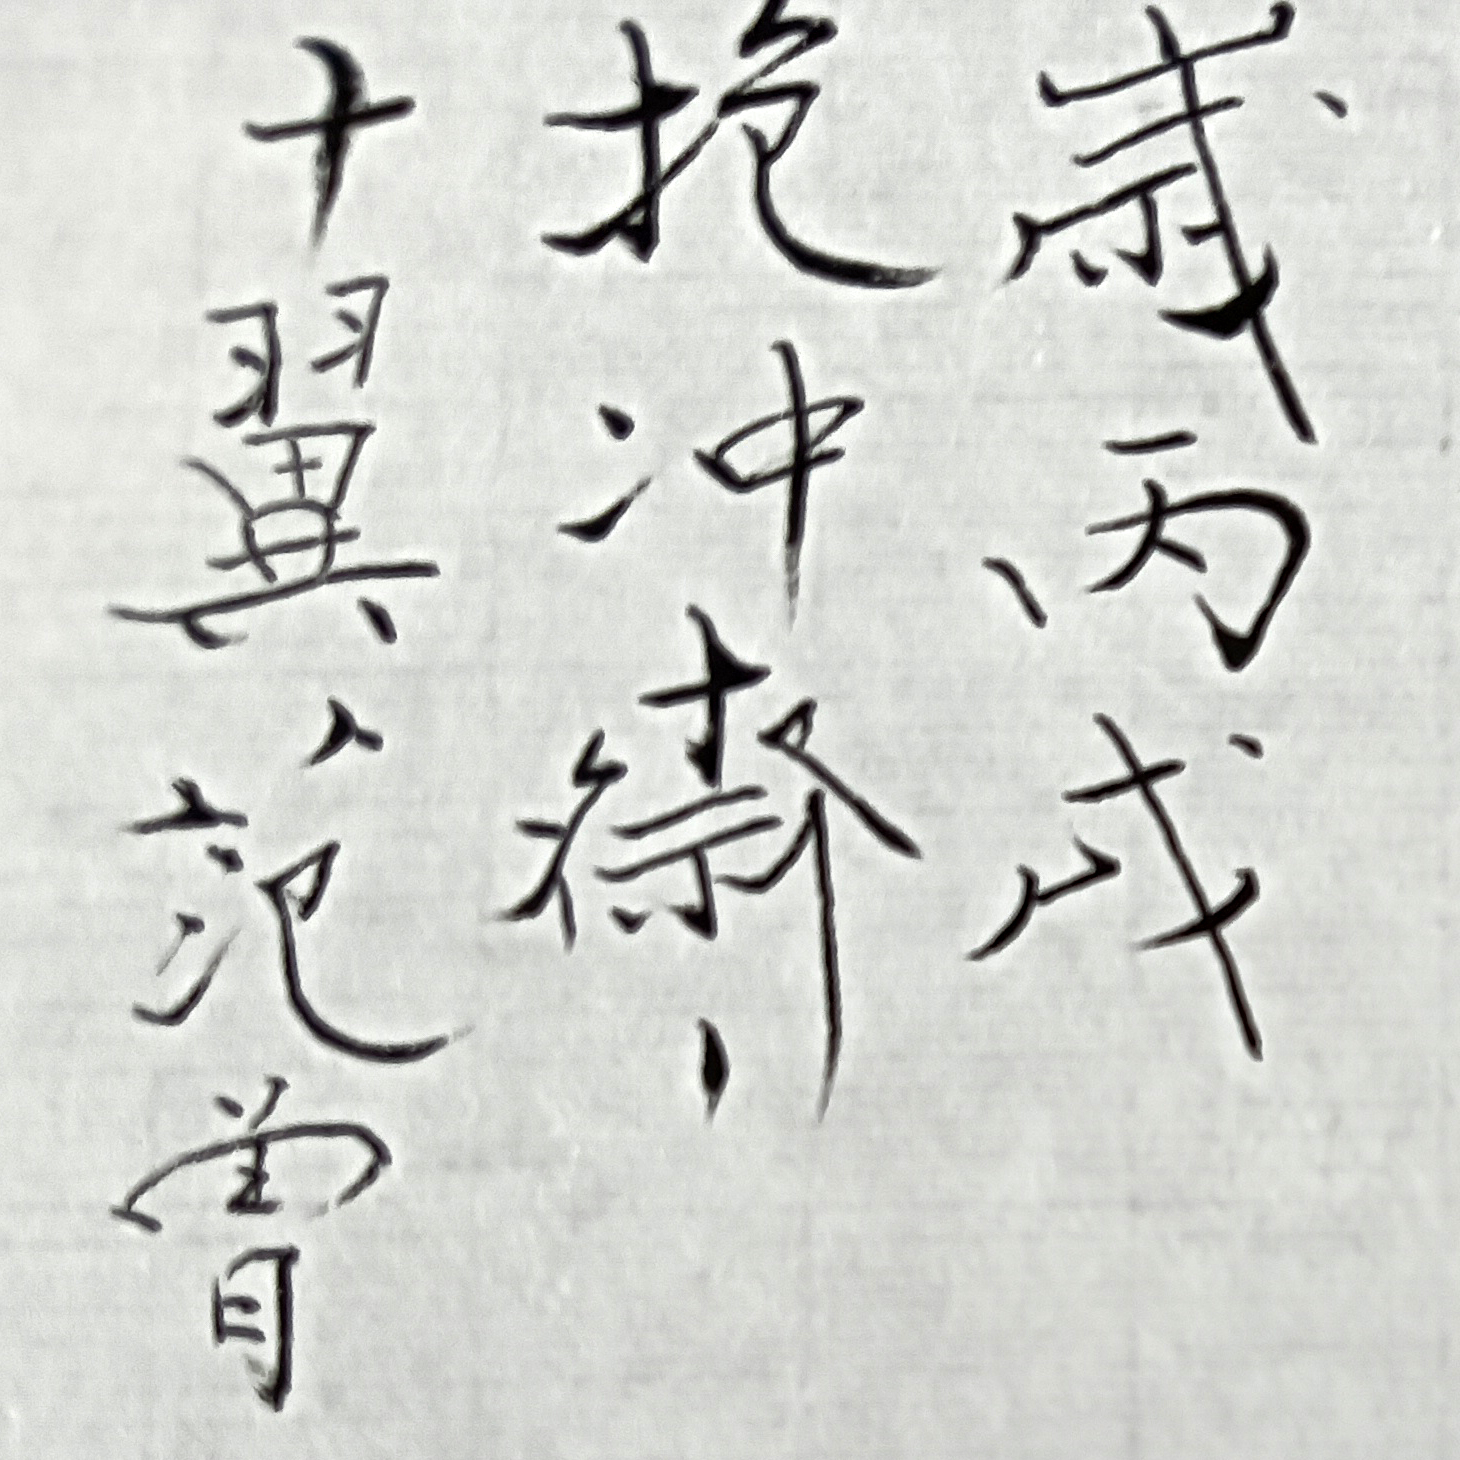 歲丙戌
抱冲齋
十翼范曾